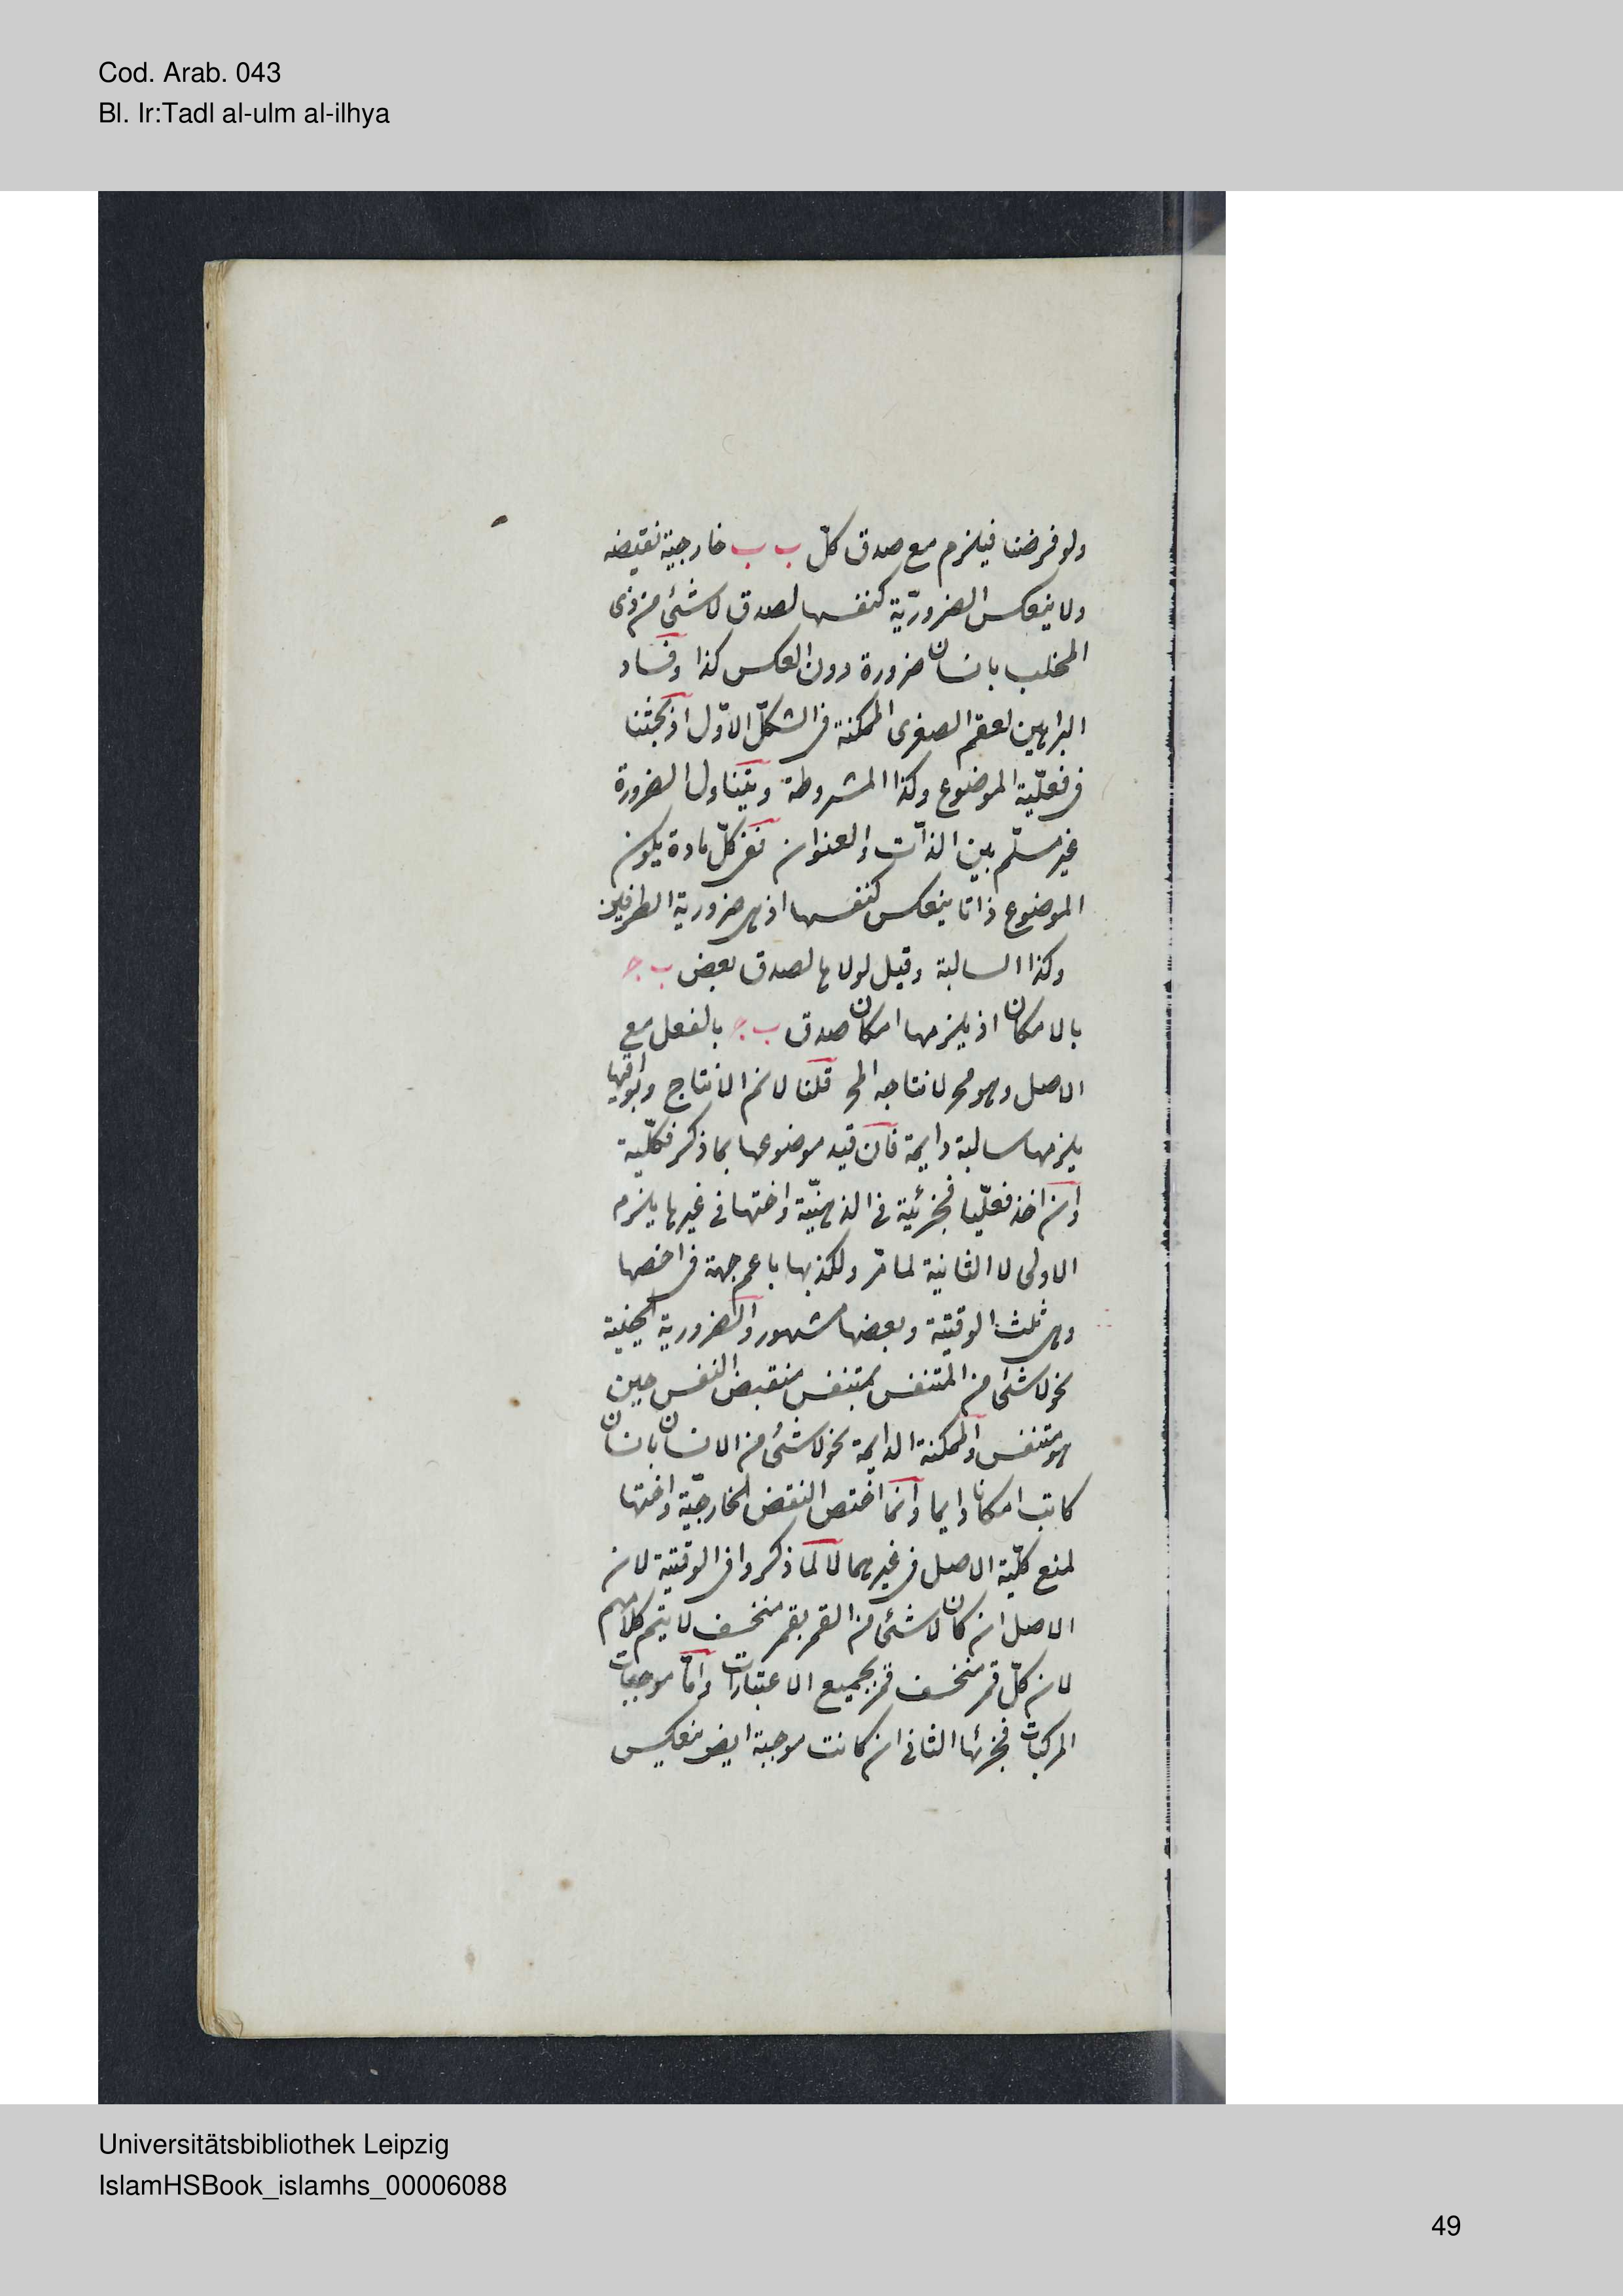 Cod. Arab. 043
Bl. Ir:Tadl al-ulm al-ilhya
ولو فرضنا فيلزم مع صدق كلّ ب ب خارجية نقيضه
ولا ينعكس الضروريّة كنفسها لصدق لا شئ من ذى
المخلب بانسان ضرورة دون العكس كذا وفساد
البراهين لعقم الصغرى الممكنة فى الشكل الاوّل اذ بحثنا
فى فعليّة الموضوع وكذا المشروطة ويتناول الضرورة
غير مسلّم بين الذات والعنوان نعم كلّ مادة يكون
الموضوع ذاتا ينعكس كنفسها اذ هى ضرورية الطرفين
وكذا السالبة وقيل لولاها لصدق بعض ب ج
بالامكان اذ يلزمها امكان صدق ب ج بالفعل مع
الاصل وهو مح لانتاجه المح قلنا لانم الانتاج وبواقيها
يلزمها سالبة دايمة فان قيد موضوعها بما ذكر فكلّية
وان اخذ فعليّا فجزئية فى الذهنيّة واختها فى غيرها يلزم
الاولى لا الثانية لما مرّ ولكذبها باعم جهة فى اخصها
وهى ثلث الوقتية وبعضها مشهور والضرورية الحينية
نحو لا شئ من المتنفس بمتنفس منقبض النفس حين
هو متنفس والممكنة الدايمة نحو لا شئ من الانسان بانسان
كاتب امكانا دايما وانما اختص النقض الخارجيّة واختها
لمنع كلّية الاصل فى غيرهما لا لما ذكروا فى الوقتية لان
الاصل ان كان لا شئ من القمر بقمر منخسف لا يتم كلامهم
لان كلّ قمر منخسف قمر بجميع الاعتبارات وامّا موجبات
المركبات فجزئها الثانى ان كانت موجبة ايض منعكس
Universitätsbibliothek Leipzig
IslamHSBook_islamhs_00006088
49